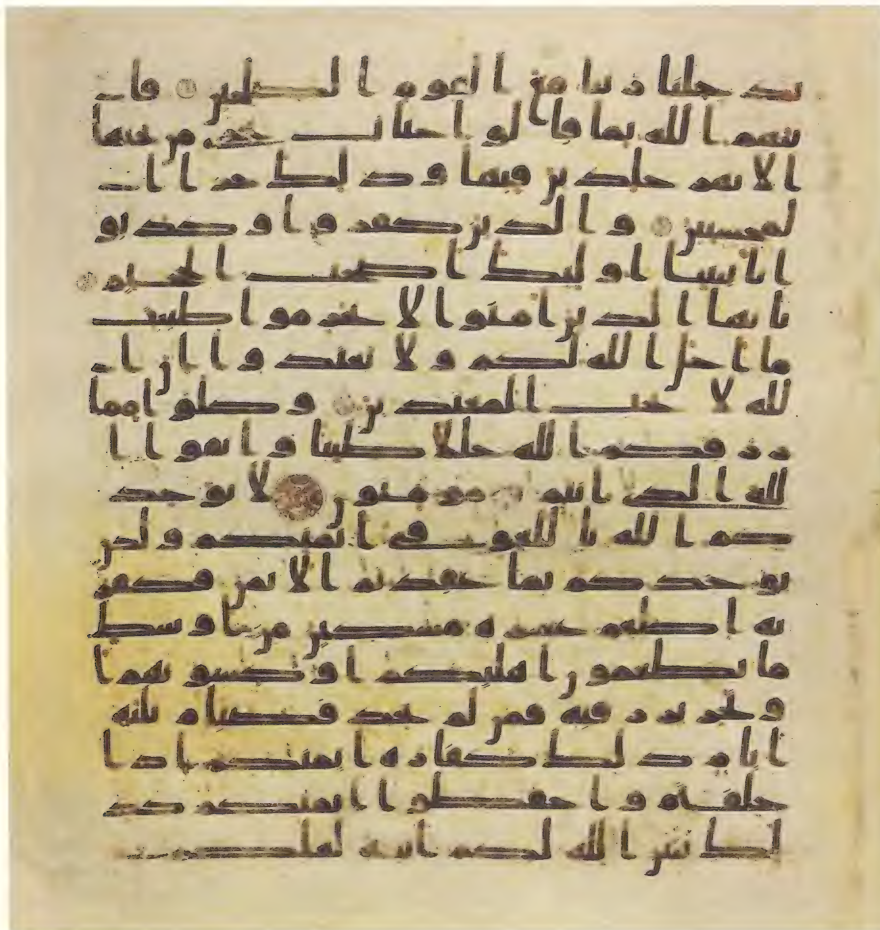 يدخلنا ربنا مع القوم الصلحين فا
ثبهم الله بما قالوا جنت تجرى من تحتها
الانهر خلدين فيها وذلك جزا ا
لمحسنين والذين كفروا وكذبو
ا بايتنا اوليك اصحب الجحيم
يايها الذين امنوا لا تحرموا طيبت
ما احل الله لكم ولا تعتدوا ان ا
لله لا يحب المعتدين وكلوا مما
رزقكم الله حللا طيبا واتقوا ا
لله الذى انتم به مومنون لا يوخذ
كم الله باللغو فى ايمنكم ولكن
يوخذكم بما عقدتم الايمن فكفر
ته اطعم عشرة مسكين من اوسط
ما تطعمون اهليكم او كسوتهم ا
و تحرير رقبة فمن لم يجد فصيام ثلثة
ايام ذلك كفارة ايمنكم اذا
حلفتم واحفظوا ايمنكم كذ
لك يبين الله لكم ايته لعلكم ت